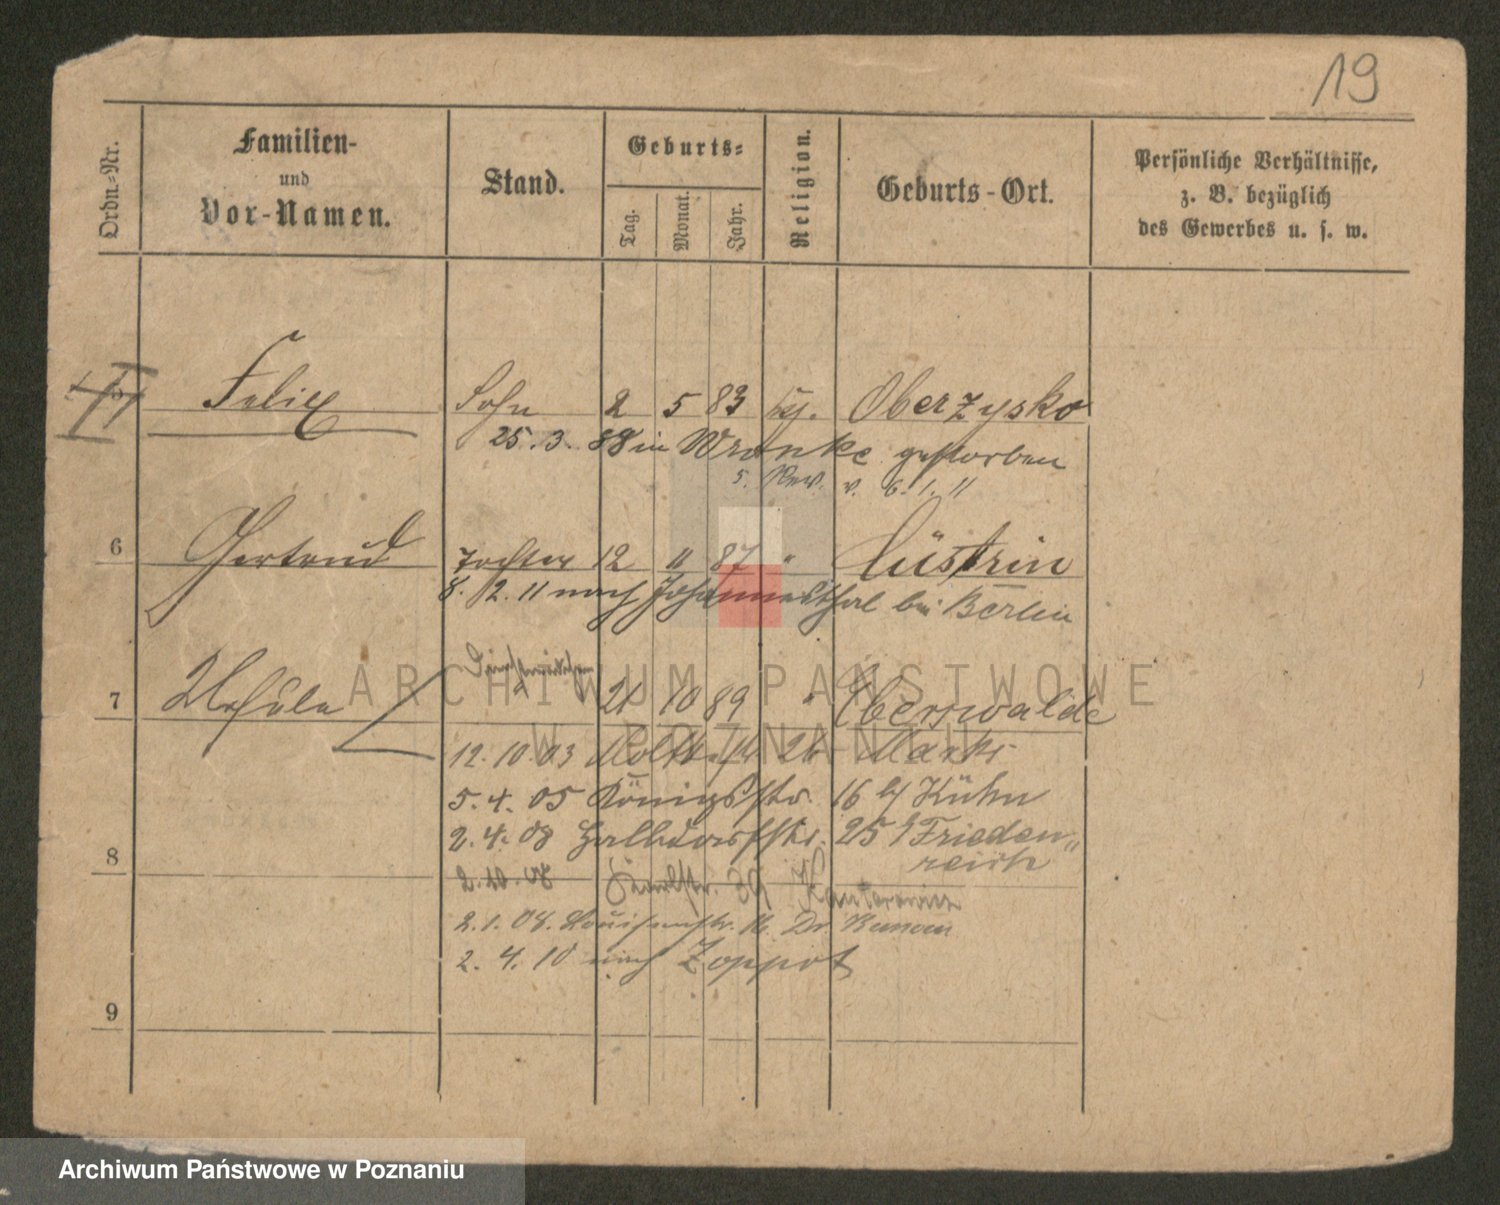 19
Ordn.-Nr.
Familien-
und
Vor-Namen.
Stand.
Geburts-
Tag.
Monat.
Jahr.
Religion.
Geburts-Ort.
Persönliche Verhältnisse,
z. B. bezüglich
des Gewerbes u. s. w.
Felix Sohn 2 5 83 Oberzysko
25. 3. 88 in Wronke gestorben
v. 6. 1. 11
6 Gertrud Tochter 12 11 87 " Cüstrin
8. 2. 11 nach Johannesthal bei Berlin
7 Ursula 21 10 89 " Eberswalde
12. 10. 03 26
5. 4. 05 Königsstr. 16 b/ Kühn
2. 4. 08 25 Frieden-
reich
8
2. 10. 08 39
2. 1. 08. Louisenstr. 16 Dr.
2. 4. 10 nach Zoppot
9
ARCHIWUM PAŃSTWOWE
W POZNANIU
Archiwum Państwowe w Poznaniu